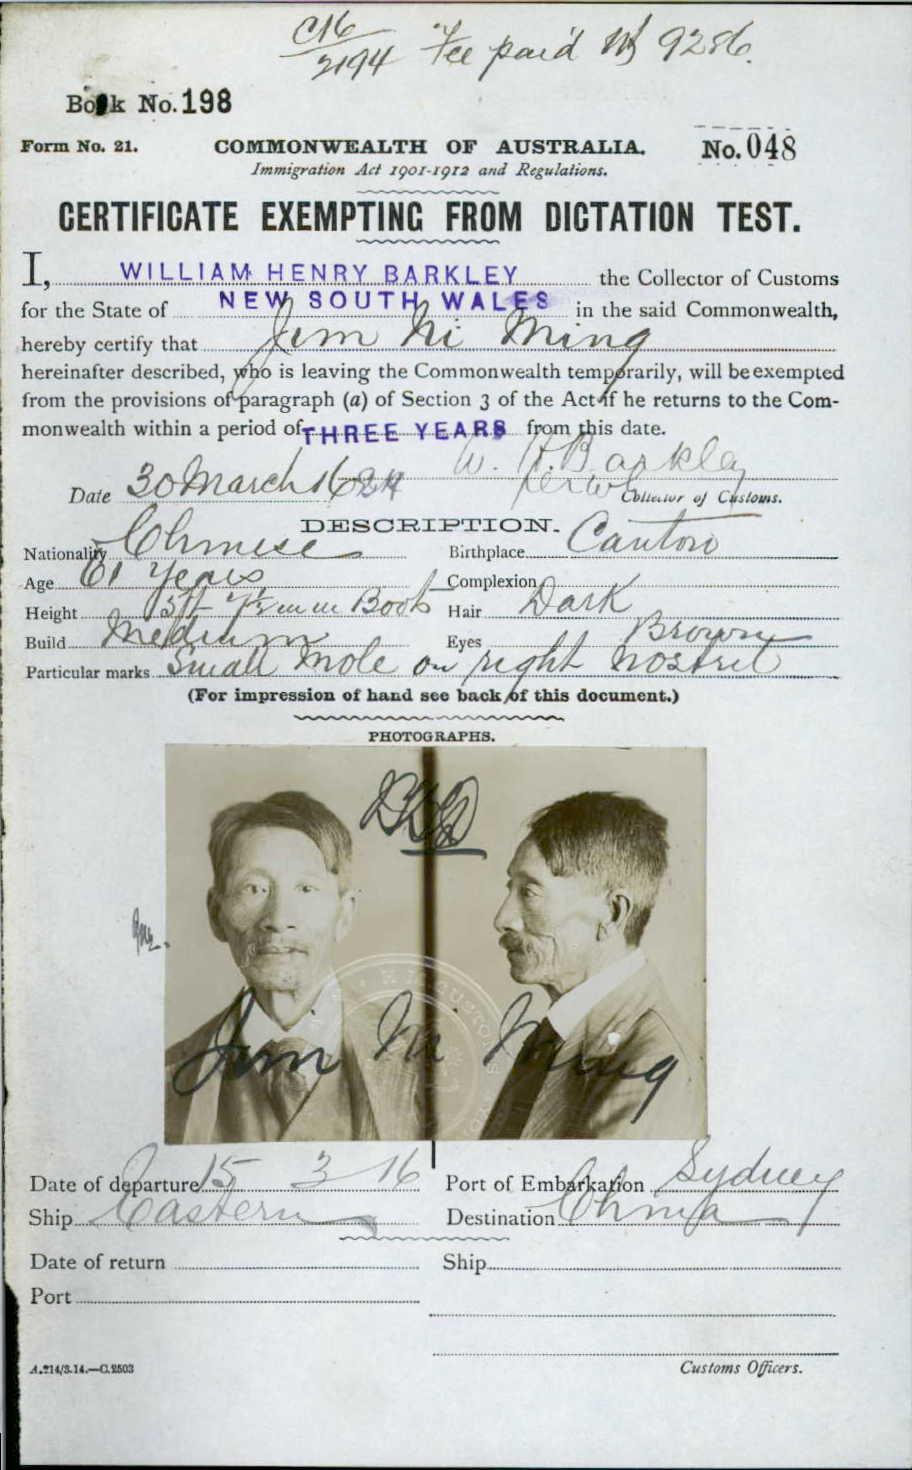 C16
2194 Fee paid 9286.
Book No. 198
Form No. 21. COMMONWEALTH OF AUSTRALIA. No. 048
Immigration Act 1901-1912 and Regulations.
CERTIFICATE EXEMPTING FROM DICTATION TEST.
I, WILLIAM HENRY BARKLEY the Collector of Customs
for the State of NEW SOUTH WALES in the said Commonwealth,
hereby certify that Jim Ni Ming
hereinafter described, who is leaving the Commonwealth temporarily, will be exempted
from the provisions of paragraph (a) of Section 3 of the Act if he returns to the Com-
monwealth within a period of THREE YEARS from this date.
W. H. Barkley
Date 30 March 16 Collector of Customs.
DESCRIPTION.
Nationality Chinese Birthplace Canton
Age 61 years Complexion
Height 5ft in Boots Hair Dark
Build Medium Eyes Brown
Particular marks Small mole on right nostril
(For impression of hand see back of this document.)
PHOTOGRAPHS.
Jim Ni Ming
Date of departure 15 3 16 Port of Embarkation Sydney
Ship Eastern Destination China
Date of return Ship
Port
A.714/3.14.—C.2503 Customs Officers.